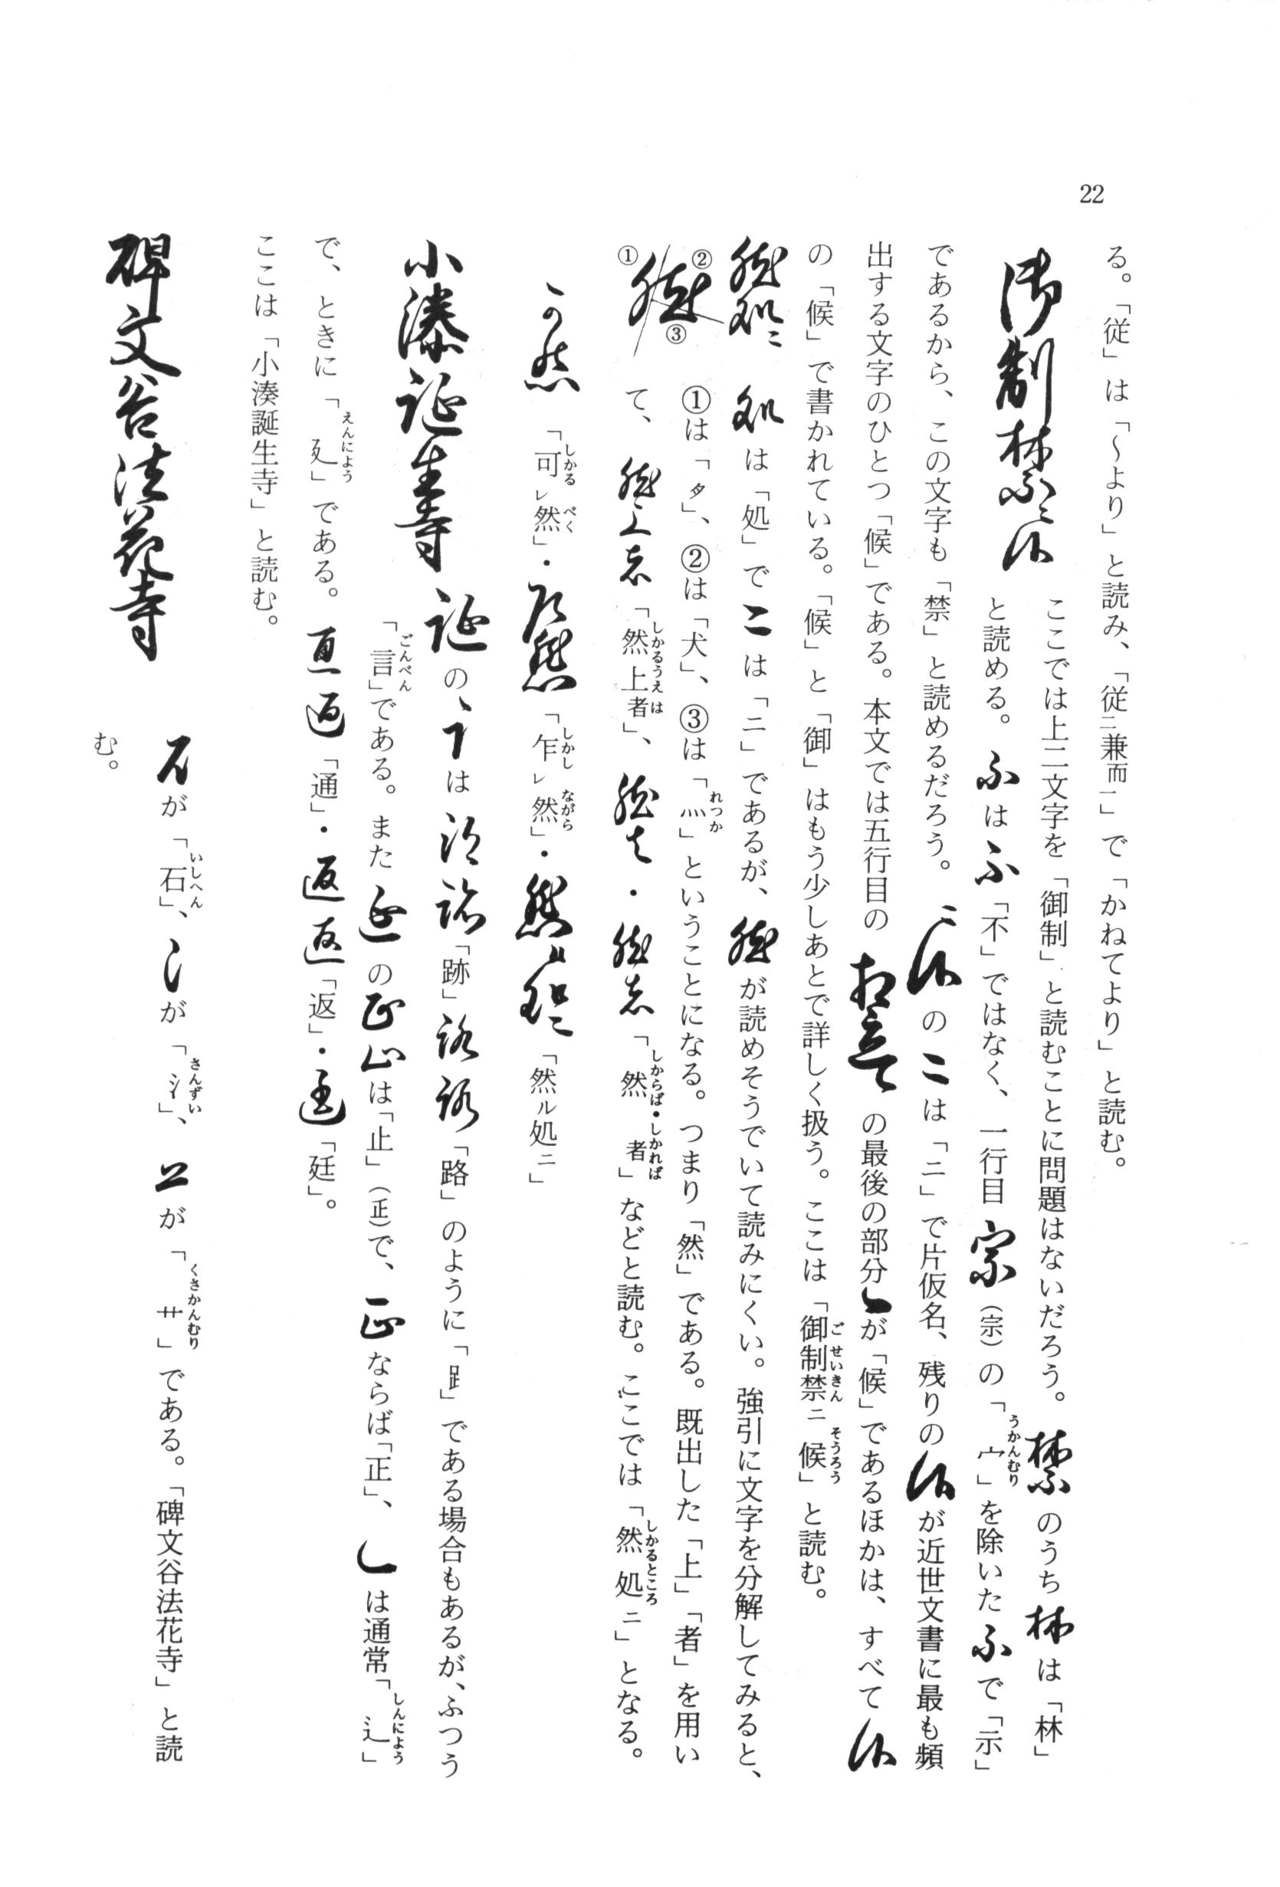 22
る。「従」は「～より」と読み、「従ニ兼而一」で「かねてより」と読む。
御制禁ニ候
ここでは上二文字を「御制」と読むことに問題はないだろう。禁のうち林は「林」
と読める。ふはふ「不」ではなく、一行目宗（宗）の「宀」を除いたふで「示」
であるから、この文字も「禁」と読めるだろう。ニ候のニは「ニ」で片仮名、残りの候が近世文書に最も頻
出する文字のひとつ「候」である。本文では五行目のの最後の部分が「候」であるほかは、すべて候
の「候」で書かれている。「候」と「御」はもう少しあとで詳しく扱う。ここは「御制禁ニ候」と読む。
然処ニ
処は「処」でニは「ニ」であるが、然が読めそうでいて読みにくい。強引に文字を分解してみると、
① ② ③
①は「夕」、②は「犬」、③は「灬」ということになる。つまり「然」である。既出した「上」「者」を用い
て、然上者「然上者」、然者・然者「然者」などと読む。ここでは「然処ニ」となる。
可然「可レ然」・乍然「乍レ然」・然ル処ニ「然ル処ニ」
小湊誕生寺
誕の言は「跡」路路「路」のように「𧾷」である場合もあるが、ふつう
「言」である。また延の正止は「止」（正）で、正ならば「正」、は通常「辶」
で、ときに「廴」である。通「通」・返返「返」・廷「廷」。
ここは「小湊誕生寺」と読む。
碑文谷法花寺
石が「石」、氵が「氵」、が「艹」である。「碑文谷法花寺」と読
む。